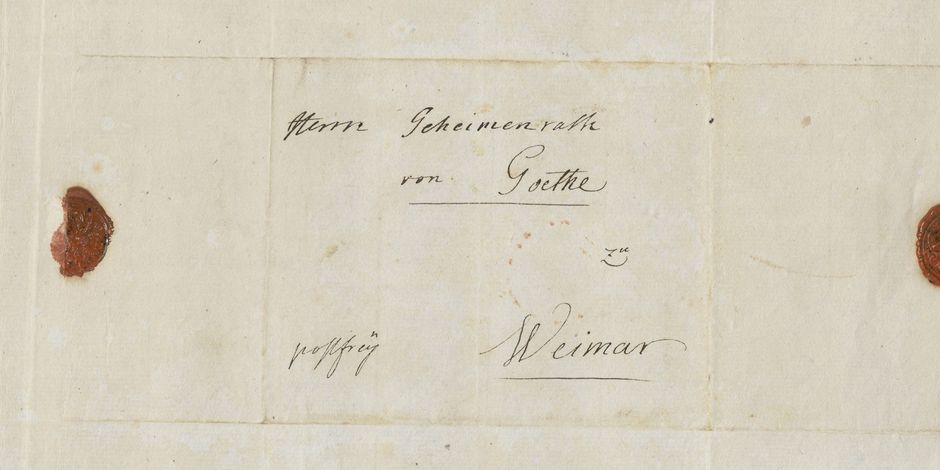 Herrn Geheimenrath
von Goethe
zu
Weimar
postfreÿ